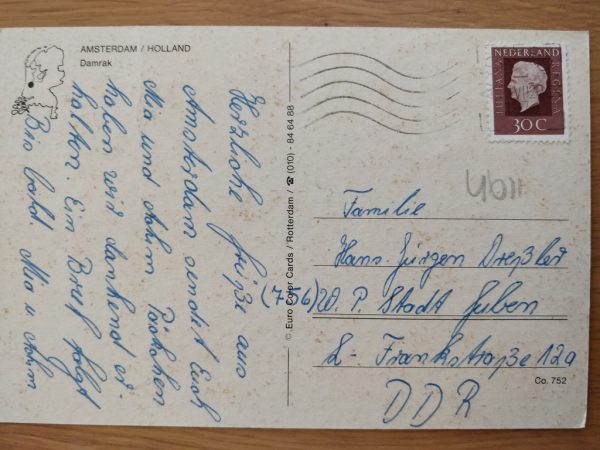 AMSTERDAM / HOLLAND
Damrak
Herzliche Grüße aus
Amsterdam sendet Euch
Mia und Achim Päckchen
haben wir dankend er-
halten. Ein Brief folgt
Bis bald. Mia u. Achim
© Euro Color Cards / Rotterdam / ☎ (010) - 84 64 88
NEDERLAND
JULIANA REGINA
30 C
Familie
Hans-Jürgen Dreßler
(756) W. P. Stadt Guben
L- Frankstraße 12a
DDR
Co. 752